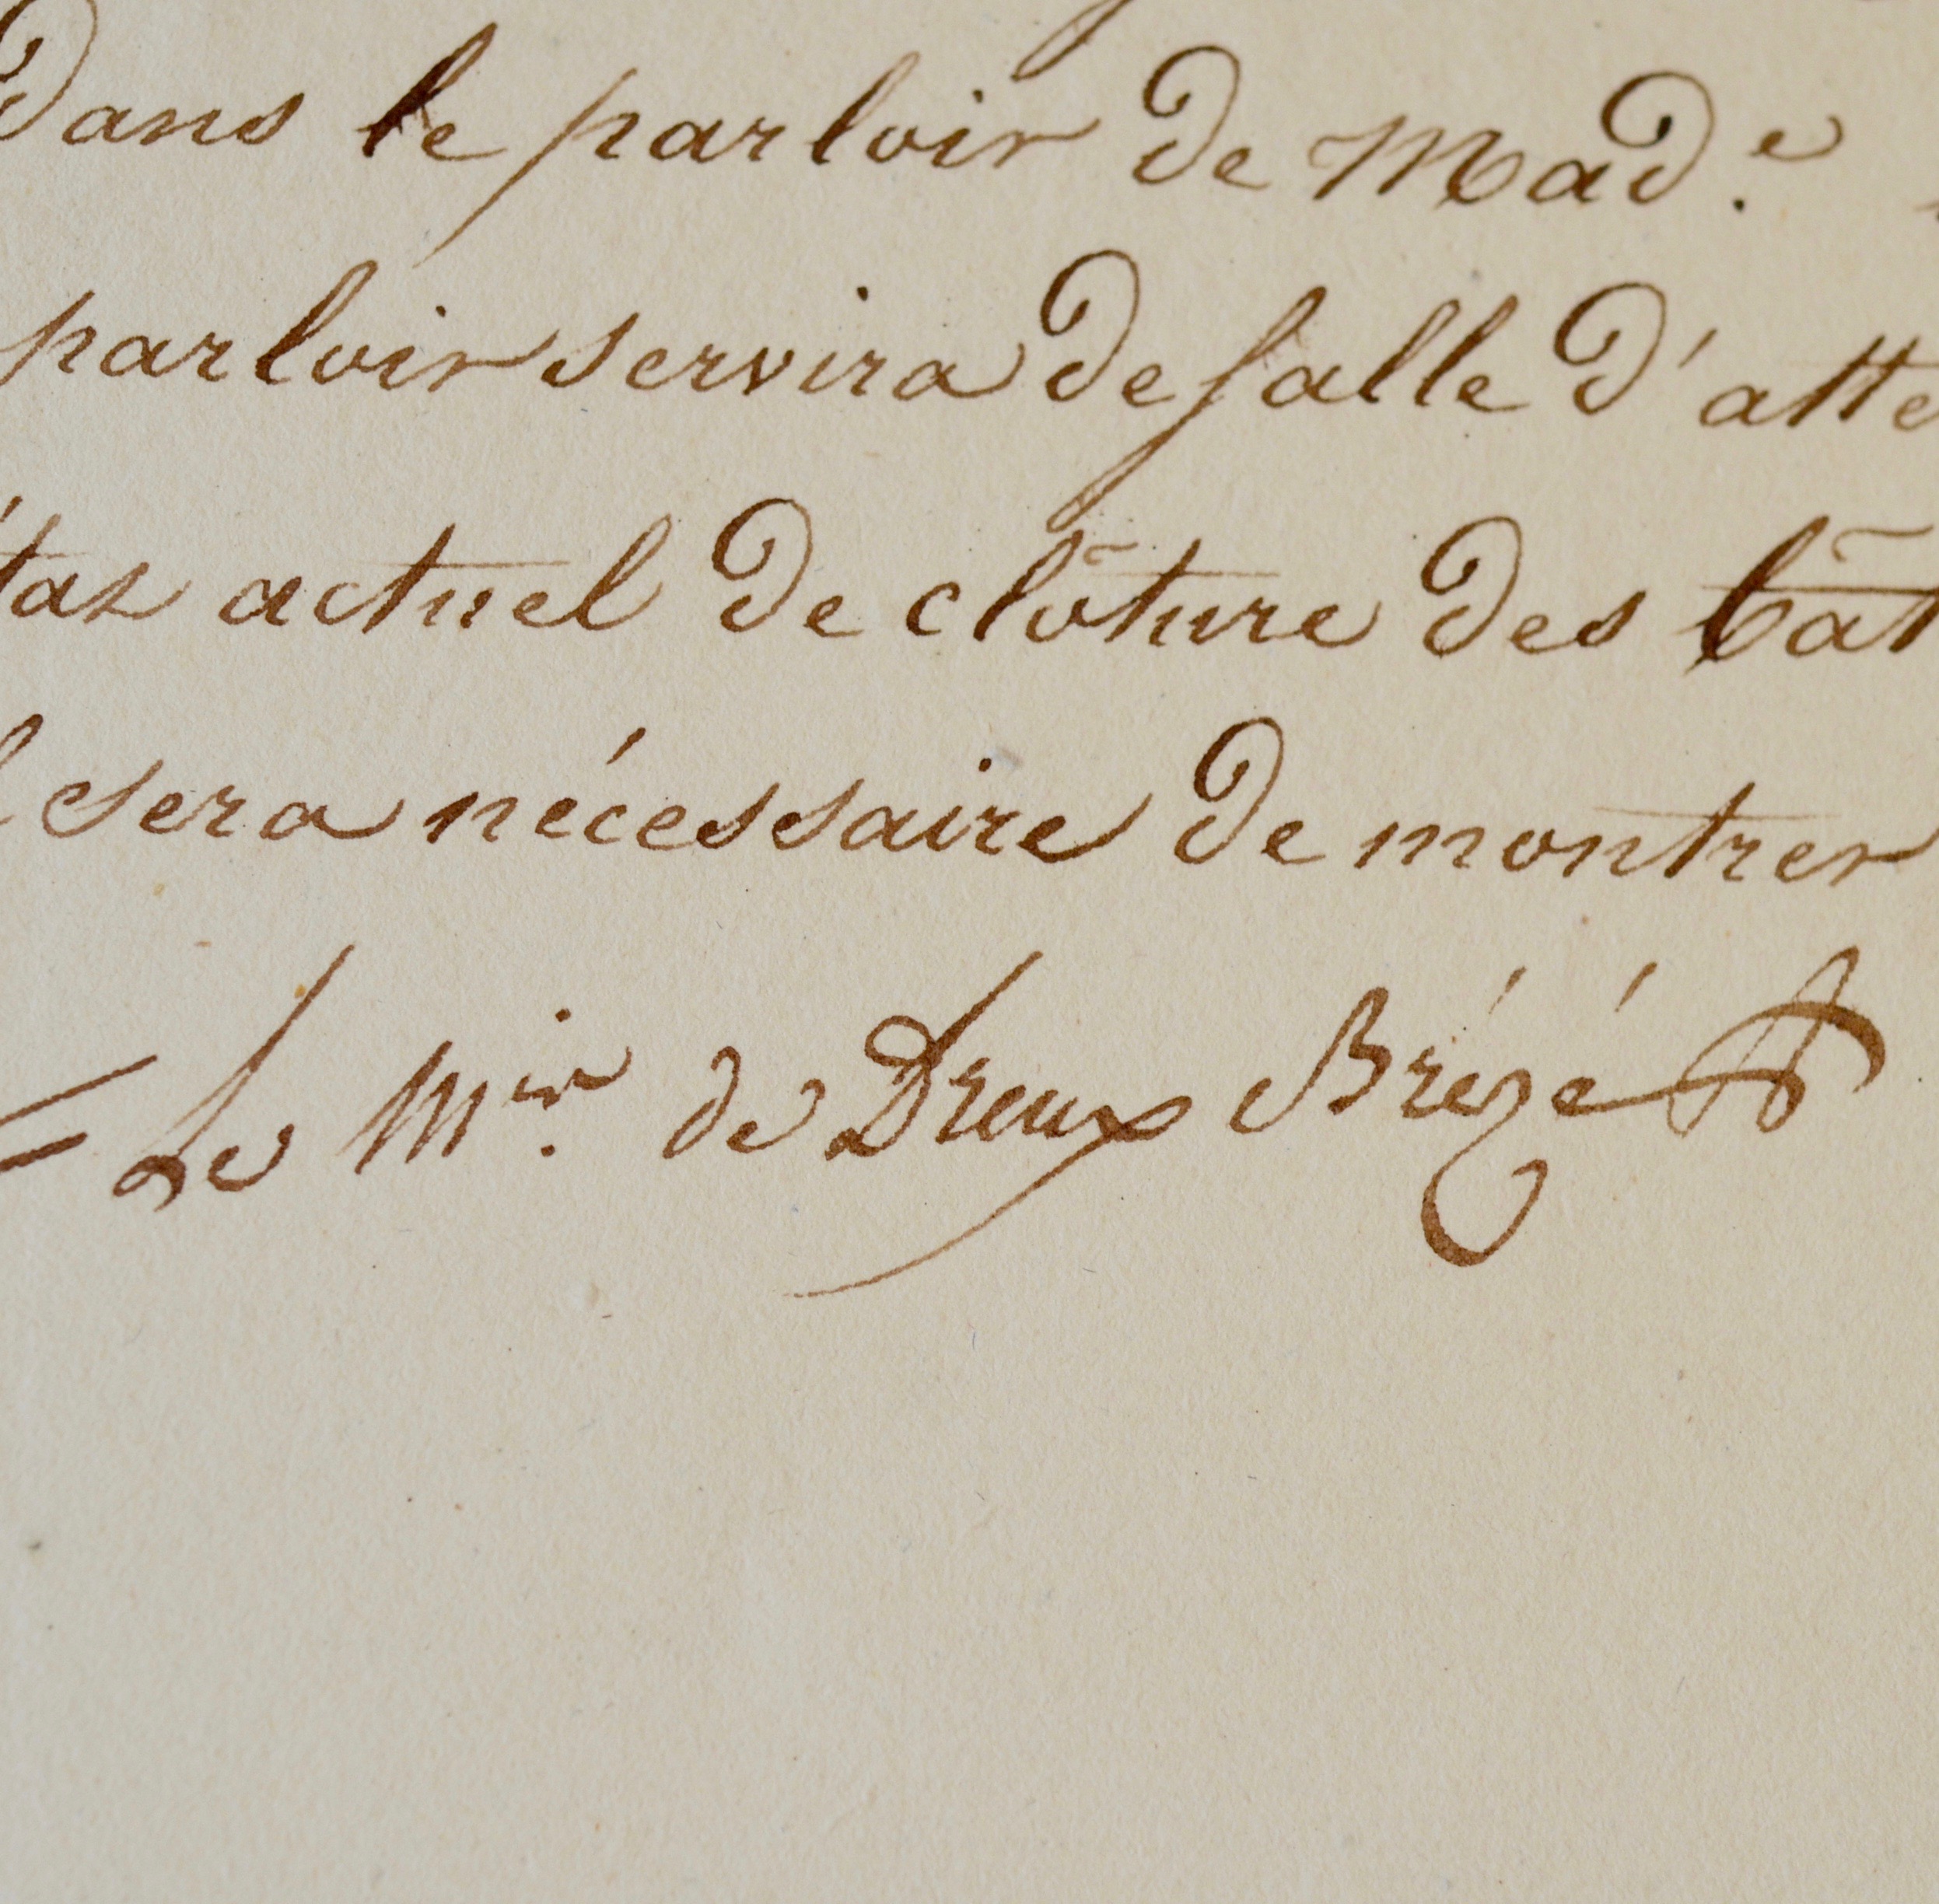 dans le parloir de Mad.e
parloir servira de salle d'atte
état actuel de clôture des bât
sera nécessaire de montrer
= Le Mis. de Dreux Brézé